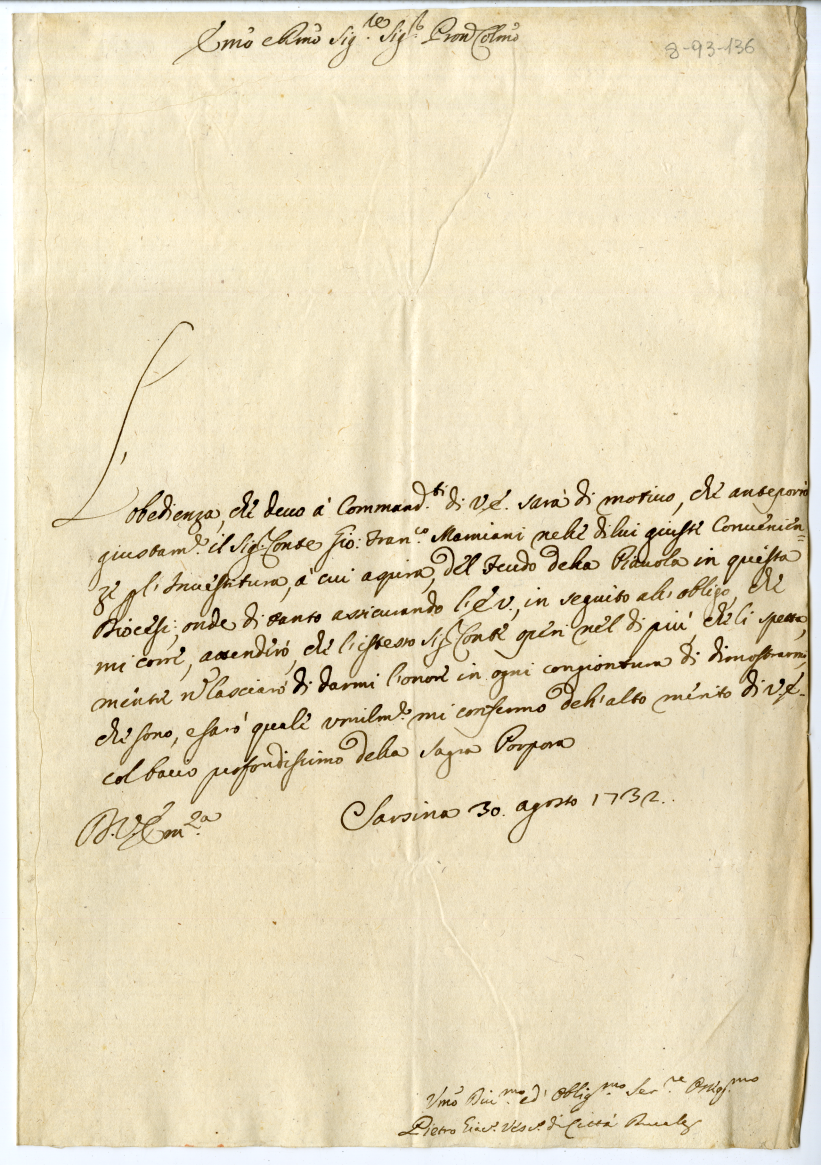 Emo e Rmo Sig.re Sig.r Pron Colmo
8-93-136
L'obedienza, che devo à Command.ti di V.E. sarà di motivo, che anteporrò
giustam.e il Sig.r Conte Gio: Fran.co Mamiani nelle di lui giuste Convenien=
ze p l'Investitura, à cui aspira, del Feudo della Piavola in questa
Diocesi; onde di tanto assicurando l'E.V., in seguito all'obligo, che
mi corre, attenderò, che l'istesso Sig.r Conte operi nel di più, che li spetta,
mentre n lasciarà di darmi l'onore in ogni congiontura di dimostrarmi,
che sono, e sarò quale umilm.e mi confermo dell'alto merito di V.E.
col bacio profondissimo della Sagra Porpora
D.V.Em.za
Sarsina 30. agosto 1732.
Umo Div.mo ed Oblig.mo Ser.re Ossq.mo
Pietro Giac.o Vesc.o di Città